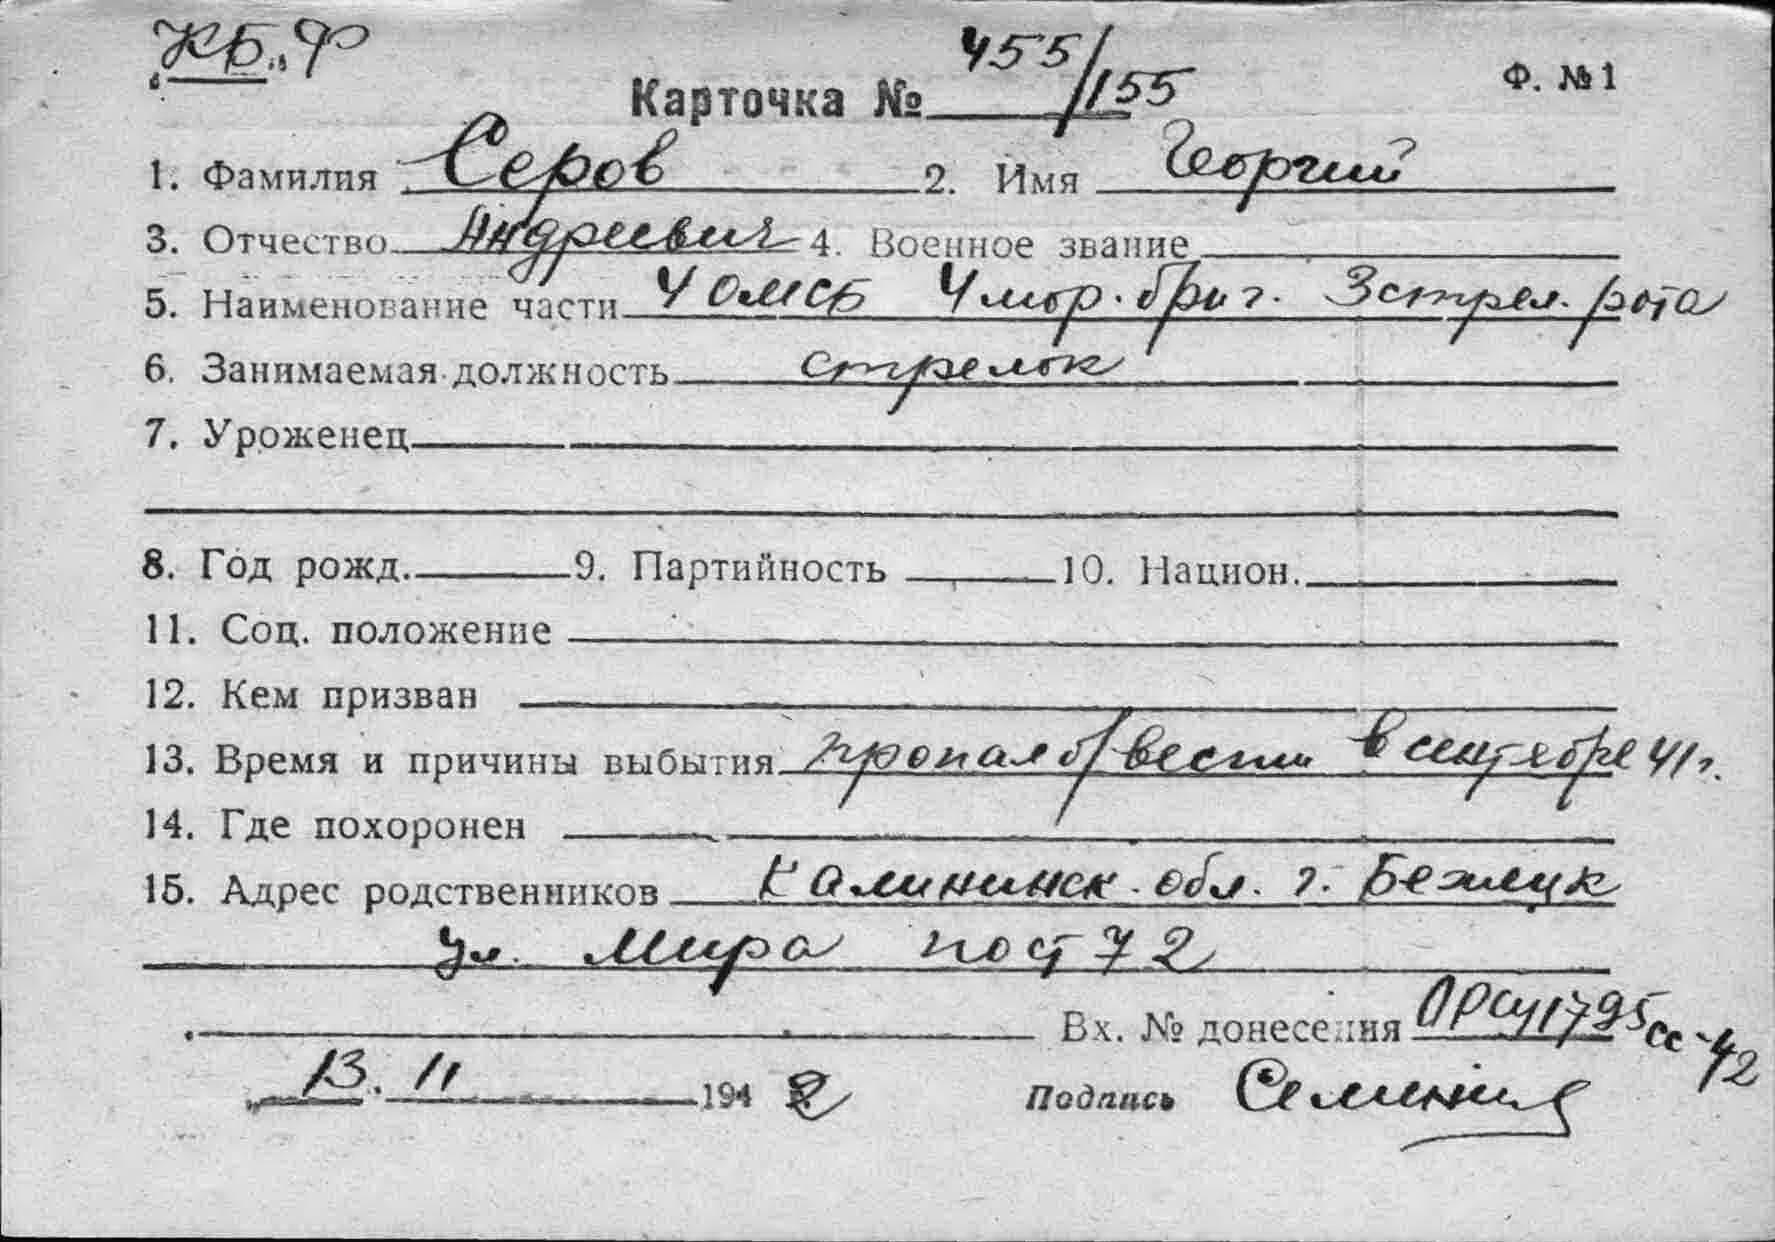 КБ.Ф
Карточка № 455/155 Ф. № 1
1. Фамилия Серов 2. Имя Георгий
3. Отчество Андреевич 4. Военное звание
5. Наименование части 4 омсб 4 мор. бриг. 3 стрел. рота
6. Занимаемая должность стрелок
7. Уроженец
8. Год рожд. 9. Партийность 10. Национ.
11. Соц. положение
12. Кем призван
13. Время и причины выбытия пропал б/вести в сентябре 41 г.
14. Где похоронен
15. Адрес родственников Калининск. обл. г. Бежецк
ул. Мира пост 72
Вх. № донесения 1795 сс-42
13. 11 194 2 Подпись